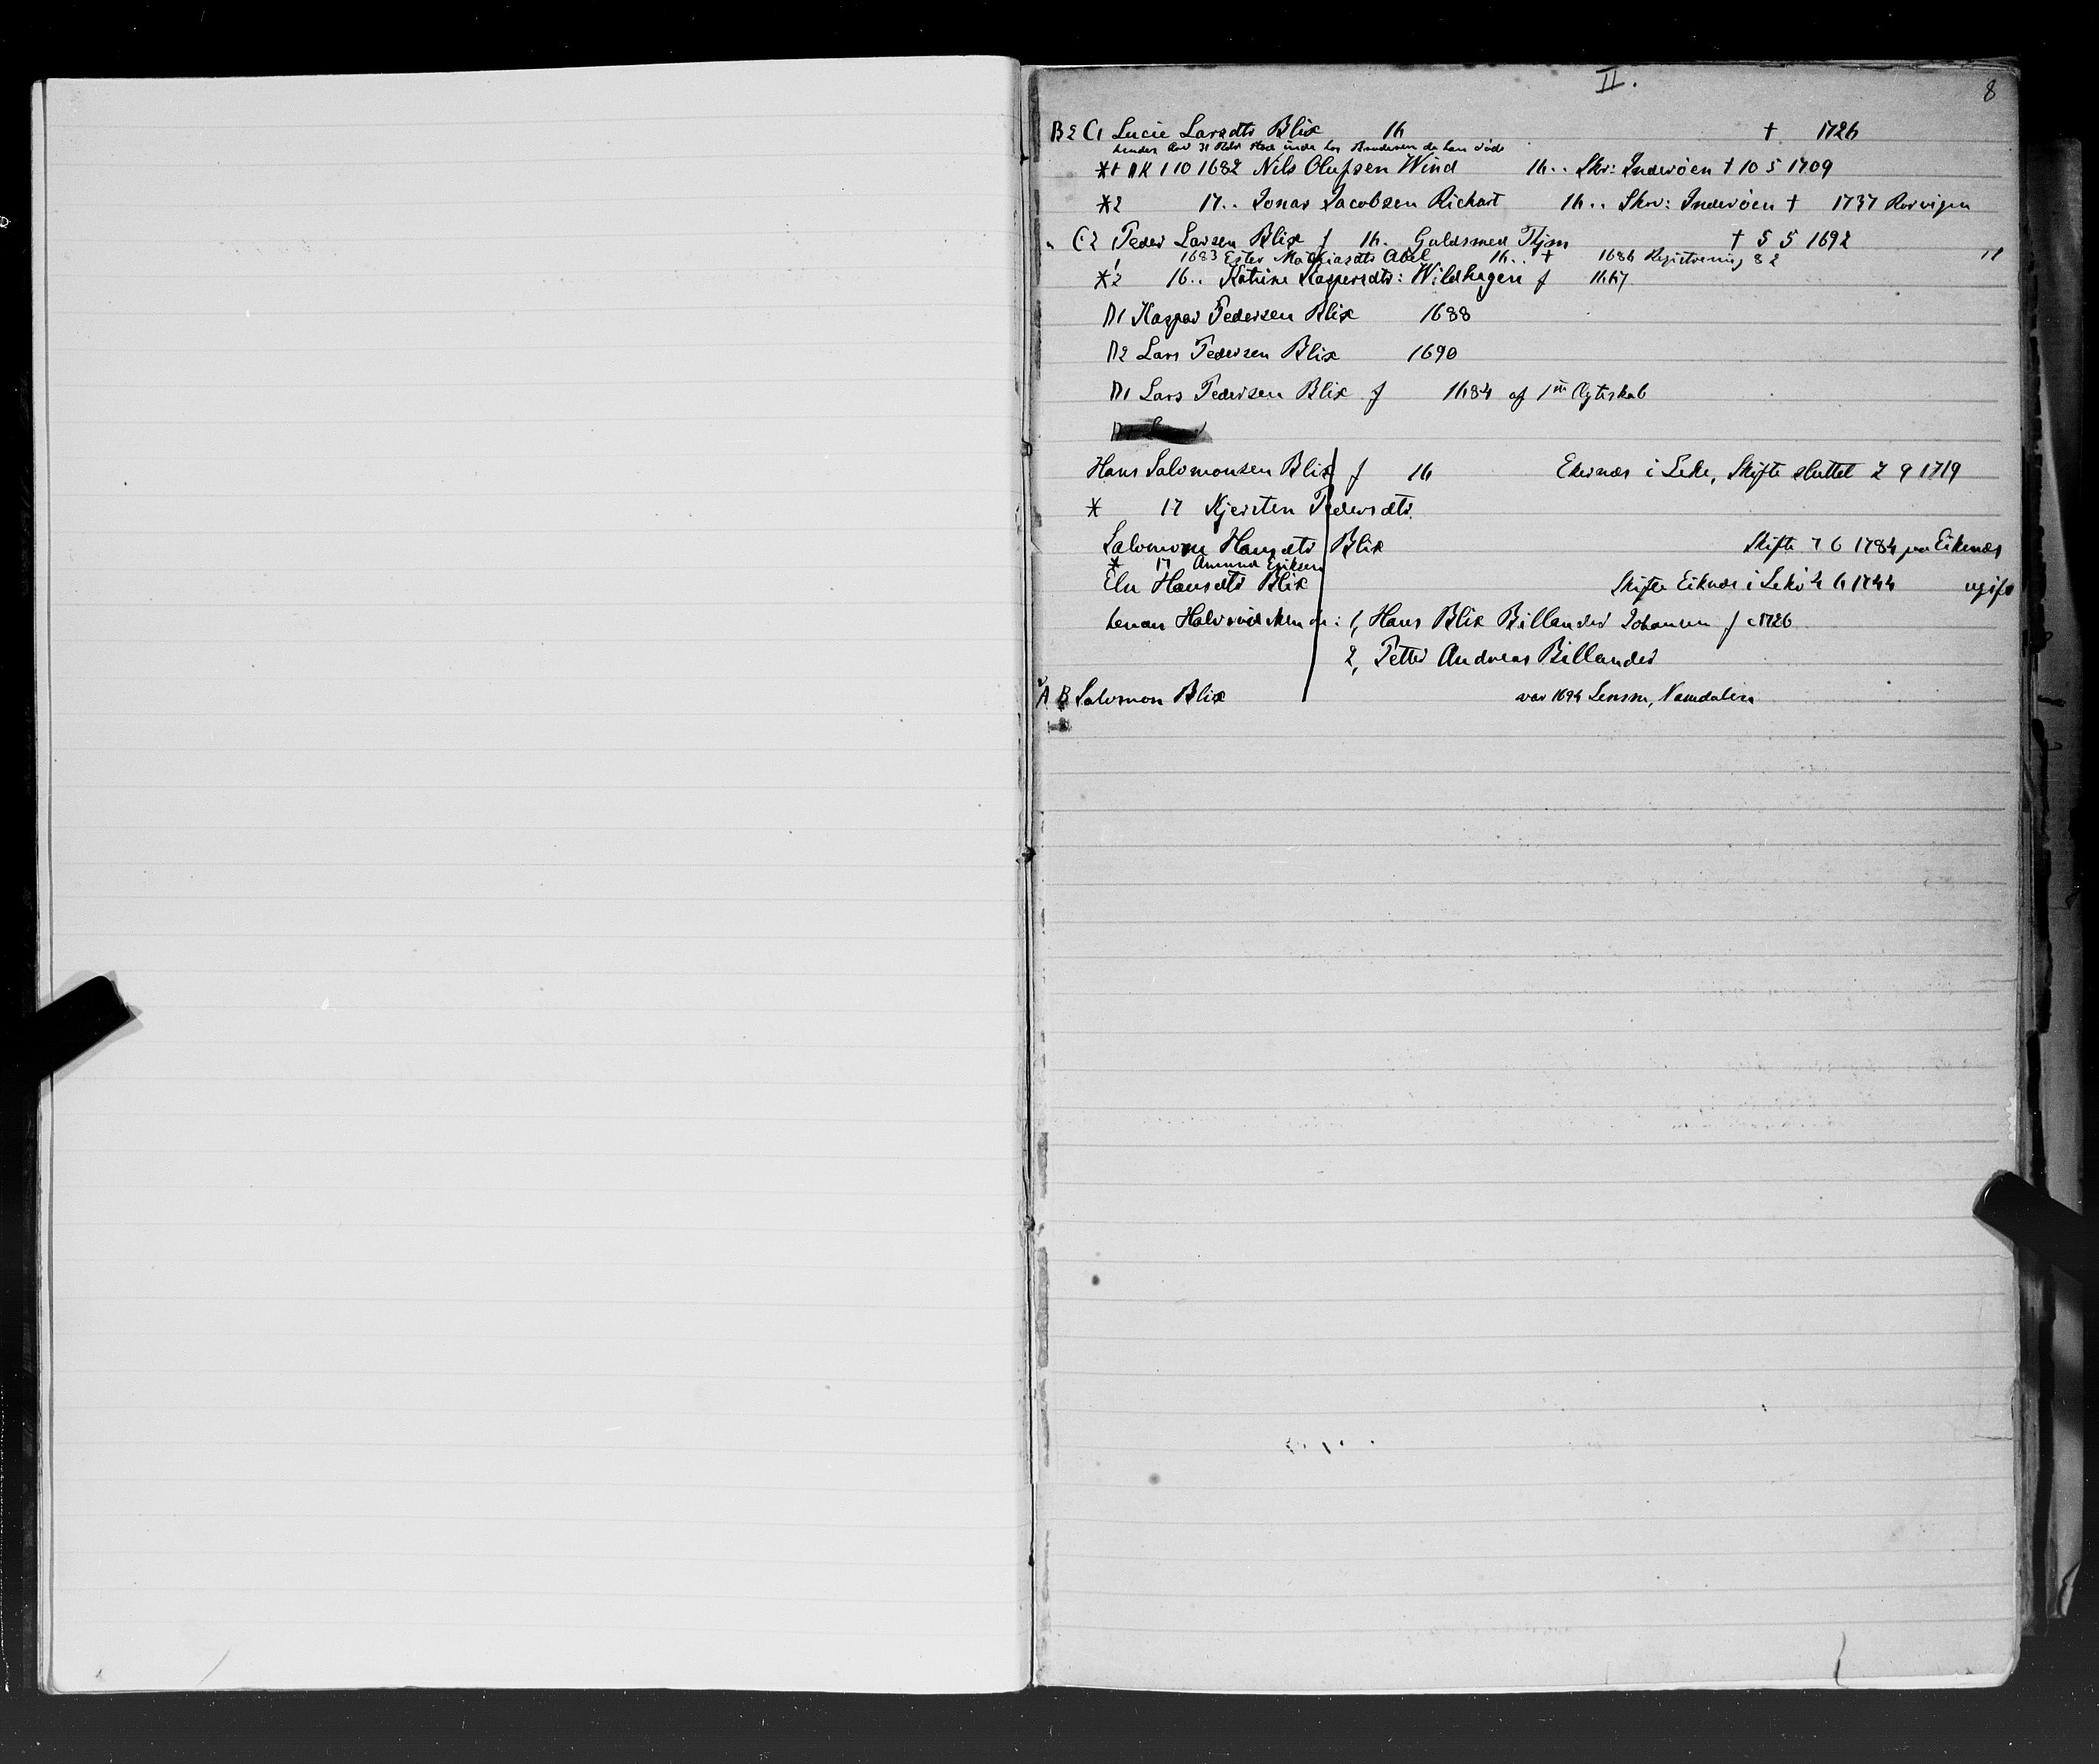 II.
8
B2 C1 Lucie Larsdtr Blix 16 † 1726
hendes Arv 31 Rdr stod inde hos Broderen da han døde
*1 DK 1 10 1682 Nils Olufsen Wind 16.. Skr: Inderøen † 10 5 1709
*2 17.. Jonas Jacobsen Richart 16.. Skrv: Inderøen † 1737 Rorvigen
" C2 Peder Larsen Blix f 16. Guldsmed Thjm † 5 5 1692
1 1683 Ester Mathiasdtr Abel 16.. † 1686 Registrering 8 2 11
*2 16.. Katrine Kaspersdtr: Wildhagen f 1667
D1 Kaspar Pedersen Blix 1688
D2 Lars Pedersen Blix 1690
D1 Lars Pedersen Blix f 1684 af 1ste Ægteskab
Hans Salomonsen Blix f 16 Ekernæs i Leke, Skifte sluttet 7 9 1719
* 17 Kjersten Pedersdtr.
Salomone Hansdtr Blix Skifte 7 6 1784 paa Eiknæs
* 17 Amund Eriksen
Eln Hansdtr Blix Skifte Eiknæs i Lekø 4 6 1744 ugift
hendes Halvsødskende: 1, Hans Blix Billander Johansen f c1726
2, Petter Andreas Billander
A B Salomon Blix var 1694 Lensm, Namdalen